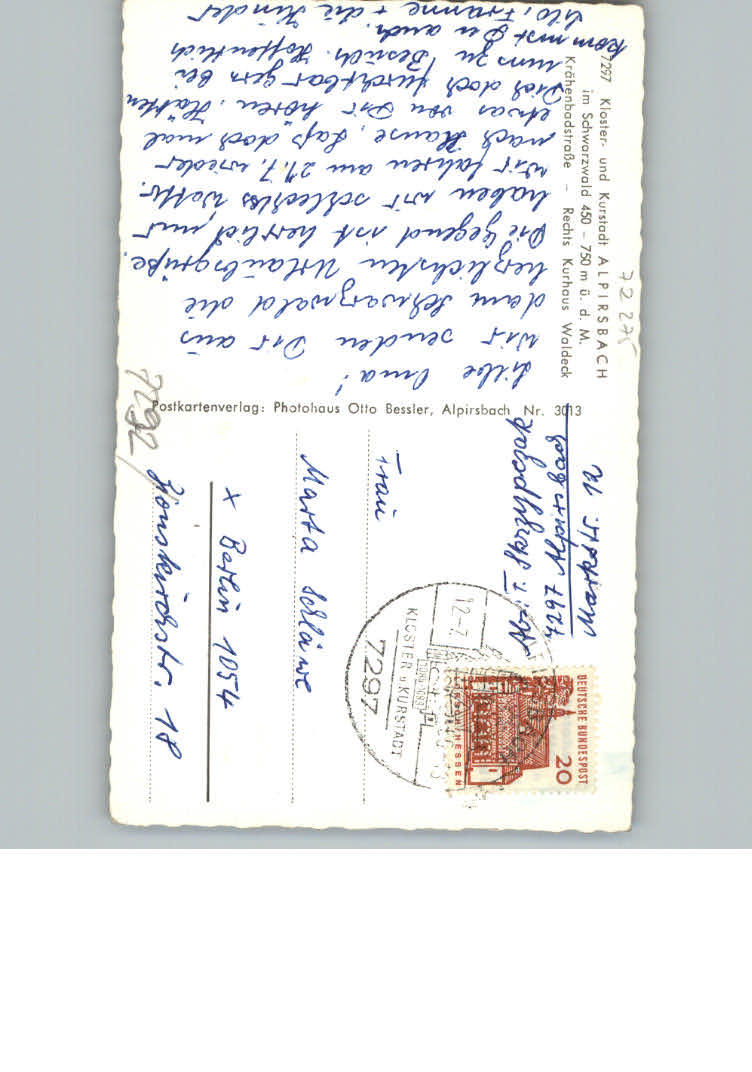 7297 Kloster- und Kurstadt ALPIRSBACH
im Schwarzwald 450 – 750 m ü. d. M.
Krähenbadstraße – Rechts Kurhaus Waldeck
72 275
Liebe Oma!
Wir senden Dir aus
dem Schwarzwald die
herzlichsten Urlaubsgrüße.
Die Gegend ist herrlich, nur
haben wir schlechtes Wetter.
Wir fahren am 21.7. wieder
nach Hause. Laß doch mal
etwas von Dir hören. Hätten
Dich doch furchtbar gern bei
uns zu Besuch. Hoffentlich
kommst Du auch.
+ die Kinder
Postkartenverlag: Photohaus Otto Bessler, Alpirsbach Nr. 3013
7292
7297
Frau
Marta
x Berlin 1054
18
DEUTSCHE BUNDESPOST
20
LORSCH/HESSEN
7297
KLOSTER u KURSTADT
12-7